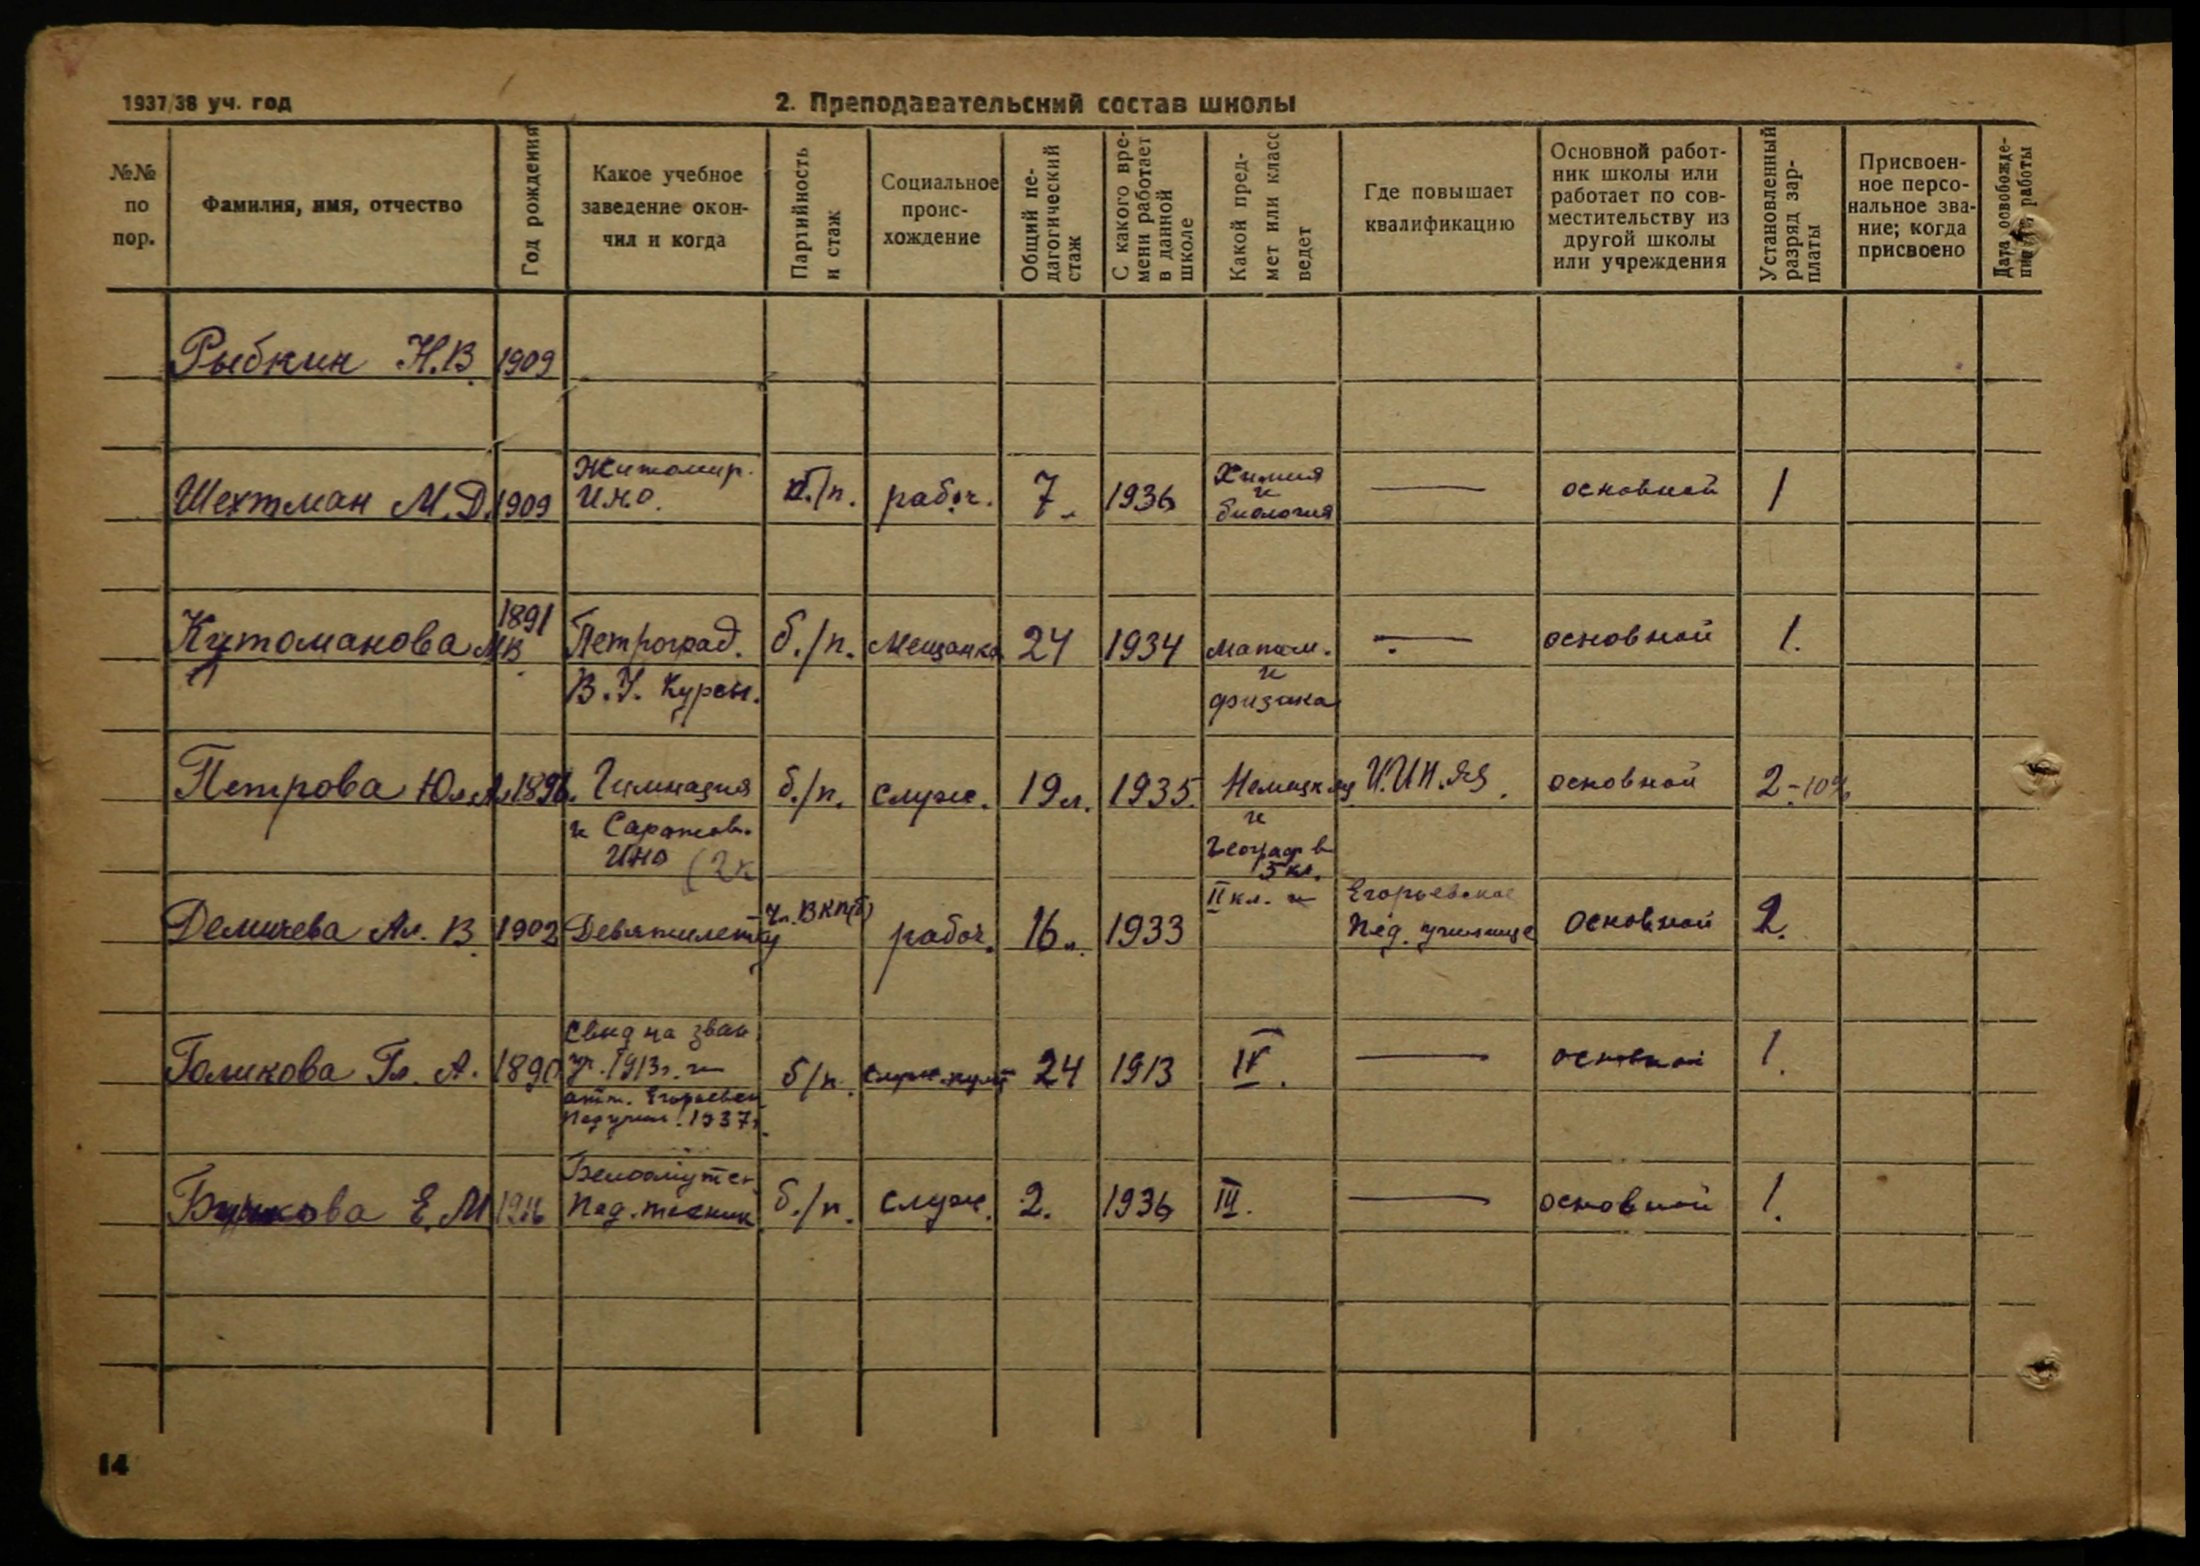 1937/38 уч. год
2. Преподавательский состав школы
№№ по пор.
Фамилия, имя, отчество
Год рождения
Какое учебное заведение окончил и когда
Партийность и стаж
Социальное происхождение
Общий педагогический стаж
С какого времени работает в данной школе
Какой предмет или класс ведет
Где повышает квалификацию
Основной работник школы или работает по совместительству из другой школы или учреждения
Установленный разряд зарплаты
Присвоенное персональное звание; когда присвоено
Дата освобождения работы
Рыбкин Н.В 1909
Шехтман М.Д. 1909 Житомир. ИНО. б./п. рабоч. 7. 1936 Химия и биология — основной 1
Кутоманова МВ 1891 Петроград. В.У. Курсы. б./п. мещанка 24 1934 матем. и физика — основной 1.
Петрова Юл.А. 189 Гимназия и Саратов. ИНО (2к б./п. служ. 19л. 1935. Немецкий и географ в 5 кл. И.ИН.ЯЗ. основной 2-10%
Демичева Ал. В. 1902 Девятилетку чл. ВКП(б) рабоч. 16л. 1933 II кл. и Егорьевское пед. училище основной 2.
Голикова Гл. А. 1890 Свид на зван уч. 1913г. и атт. Егорьевск педучил. 1937г. б/п. служ. 24 1913 IV. — основной 1.
Е.М 1916 Белоомутск. Пед. техник б./п. служ. 2. 1936 III. — основной 1.
14